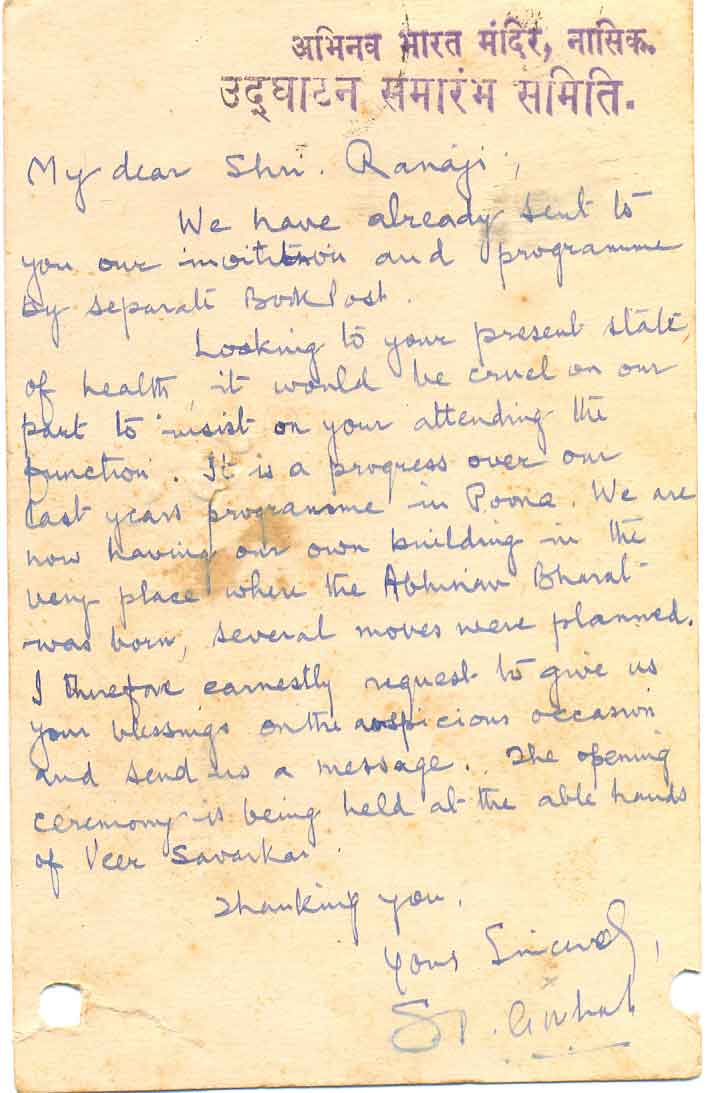 अभिनव भारत मंदिर, नासिक.
उद्घाटन समारंभ समिति.
My dear Shri. Ranaji,
We have already sent to
you our invitation and programme
by separate Book Post.
Looking to your present state
of health, it would be cruel on our
part to insist on your attending the
function. It is a progress over our
last years programme in Poona. We are
now having our own building in the
very place where the Abhinav Bharat
was born, several moves were planned.
I therefore earnestly request to give us
your blessings on the auspicious occasion
and send us a message. The opening
ceremony is being held at the able hands
of Veer Savarkar.
Thanking you,
Yours Sincerely,